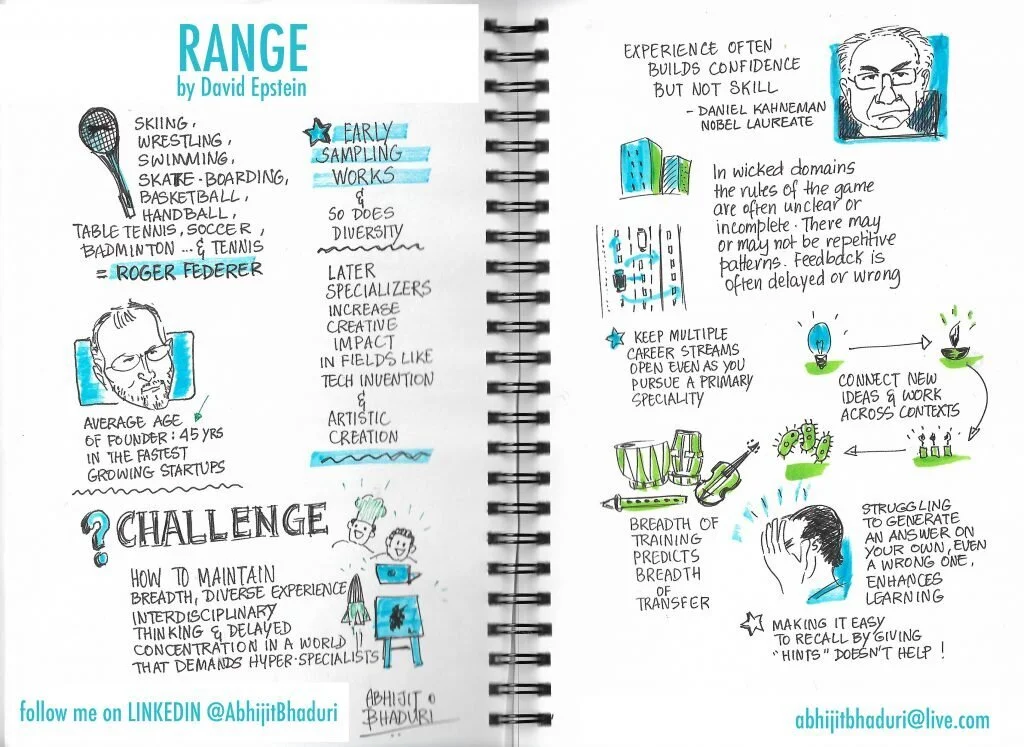 RANGE
by David Epstein
SKIING,
WRESTLING,
SWIMMING,
SKATE-BOARDING,
BASKETBALL,
HANDBALL,
TABLE TENNIS, SOCCER,
BADMINTON ... & TENNIS
= ROGER FEDERER
AVERAGE AGE
OF FOUNDER: 45 YRS
IN THE FASTEST
GROWING STARTUPS
EARLY
SAMPLING
WORKS
&
SO DOES
DIVERSITY
LATER
SPECIALIZERS
INCREASE
CREATIVE
IMPACT
IN FIELDS LIKE
TECH INVENTION
&
ARTISTIC
CREATION
? CHALLENGE
HOW TO MAINTAIN
BREADTH, DIVERSE EXPERIENCE
INTERDISCIPLINARY
THINKING & DELAYED
CONCENTRATION IN A WORLD
THAT DEMANDS HYPER-SPECIALISTS
ABHIJIT
BHADURI
follow me on LINKEDIN @AbhijitBhaduri
EXPERIENCE OFTEN
BUILDS CONFIDENCE
BUT NOT SKILL
- DANIEL KAHNEMAN
NOBEL LAUREATE
In wicked domains
the rules of the game
are often unclear or
incomplete. There may
or may not be repetitive
patterns. Feedback is
often delayed or wrong
KEEP MULTIPLE
CAREER STREAMS
OPEN EVEN AS YOU
PURSUE A PRIMARY
SPECIALITY
CONNECT NEW
IDEAS & WORK
ACROSS CONTEXTS
BREADTH OF
TRAINING
PREDICTS
BREADTH
OF
TRANSFER
STRUGGLING
TO GENERATE
AN ANSWER ON
YOUR OWN, EVEN
A WRONG ONE,
ENHANCES
LEARNING
MAKING IT EASY
TO RECALL BY GIVING
"HINTS" DOESN'T HELP!
abhijitbhaduri@live.com